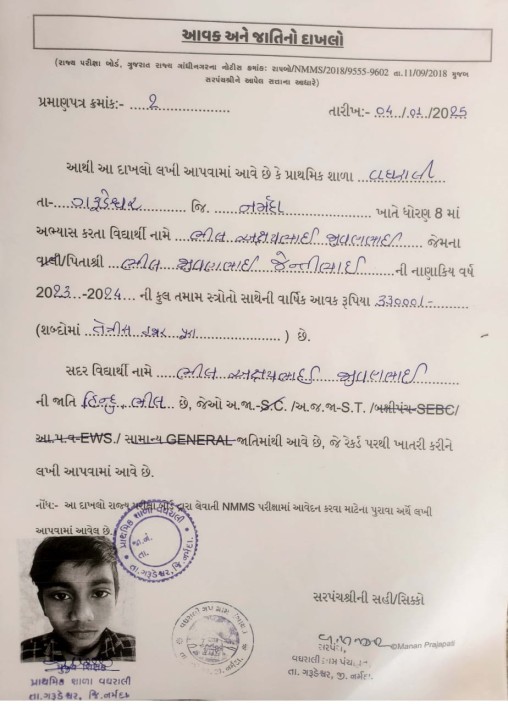 આવક અને જાતિનો દાખલો
(રાજ્ય પરીક્ષા બોર્ડ, ગુજરાત રાજ્ય ગાંધીનગરના નોટીસ ક્રમાંક: રાપબો/NMMS/2018/9555-9602 તા.11/09/2018 મુજબ
સરપંચશ્રીને આપેલ સત્તાના આધારે)
પ્રમાણપત્ર ક્રમાંક:- 2 તારીખ:- 04/01/2025
આથી આ દાખલો લખી આપવામાં આવે છે કે પ્રાથમિક શાળા વઘરાલી
તા- ગરૂડેશ્વર જિ. નર્મદા ખાતે ધોરણ 8 માં
અભ્યાસ કરતા વિદ્યાર્થી નામે ભીલ અક્ષયભાઈ જીવણભાઈ જેમના
વાલી/પિતાશ્રી ભીલ જીવણભાઈ જેન્તીભાઈ ની નાણાકિય વર્ષ
2023-2024 ની કુલ તમામ સ્ત્રોતો સાથેની વાર્ષિક આવક રૂપિયા 33000/-
(શબ્દોમાં તેત્રીસ હજાર પુરા ) છે.
સદર વિદ્યાર્થી નામે ભીલ અક્ષયભાઈ જીવણભાઈ
ની જાતિ હિન્દુ ભીલ છે, જેઓ અ.જા.-S.C. /અ.જ.જા-S.T. /બક્ષીપંચ-SEBC/
આ.પ.વ-EWS./ સામાન્ય GENERAL જાતિમાંથી આવે છે, જે રેકર્ડ પરથી ખાતરી કરીને
લખી આપવામાં આવે છે.
નોંધ:- આ દાખલો રાજ્ય પરીક્ષા બોર્ડ દ્વારા લેવાતી NMMS પરીક્ષામાં આવેદન કરવા માટેના પુરાવા અર્થે લખી
આપવામાં આવેલ છે.
પ્રાથમિક શાળા વઘરાલી
જા.નં.
તા.
તા.ગરૂડેશ્વર, જિ.નર્મદા.
સરપંચશ્રીની સહી/સિક્કો
©Manan Prajapati
સરપંચ
વઘરાલી ગ્રામ પંચાયત
તા. ગરૂડેશ્વર, જી. નર્મદા.
મુખ્ય શિક્ષક
પ્રાથમિક શાળા વઘરાલી
તા.ગરૂડેશ્વર, જિ.નર્મદા